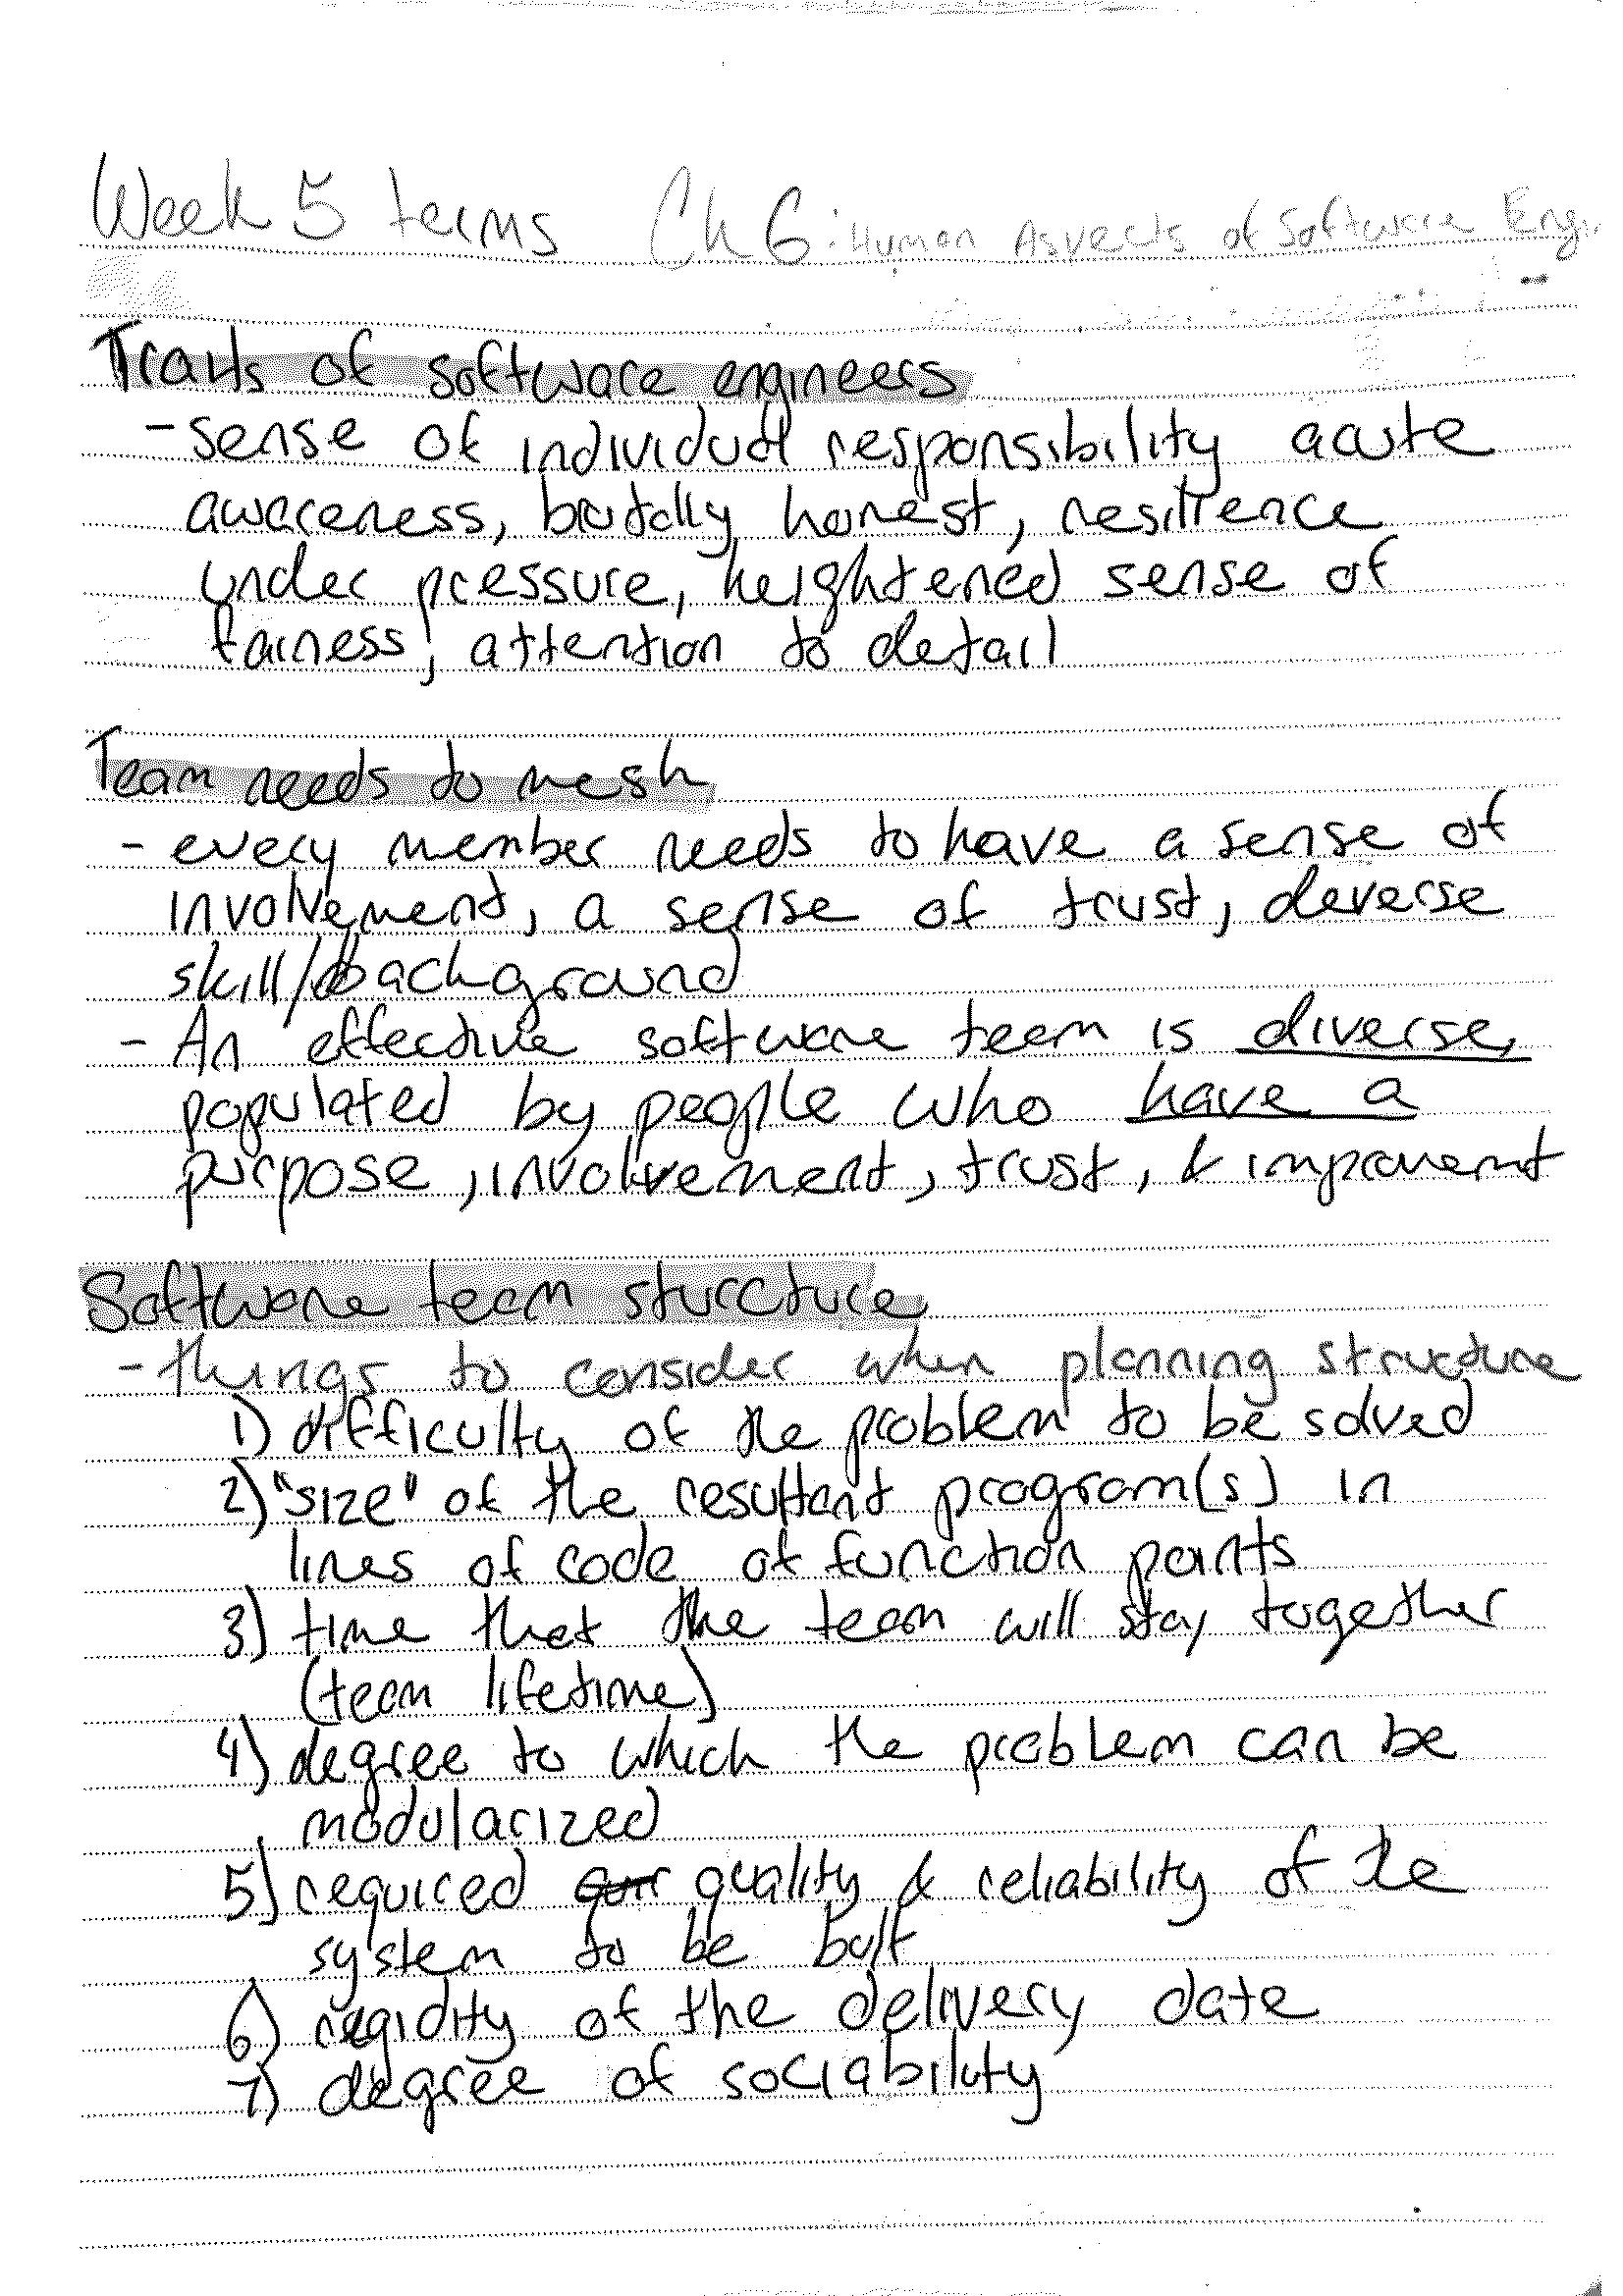 Week 5 terms Ch 6: Human Aspects of Software Engi
Traits of software engineers
- sense of individual responsibility acute
awareness, brutally honest, resilience
under pressure, heightened sense of
fairness, attention to detail
Team needs to mesh
- every member needs to have a sense of
involvement, a sense of trust, deverse
skill/background
- An effective software team is diverse,
populated by people who have a
purpose, involvement, trust, & improvement
Software team sturcture
- things to consider when planning structure
1) difficulty of the problem to be solved
2) "size" of the resultant program(s) in
lines of code of function points
3) time that the team will stay together
(team lifetime)
4) degree to which the problem can be
modularized
5) required quality & reliability of the
system to be built
6) regidity of the delivery date
7) degree of sociability